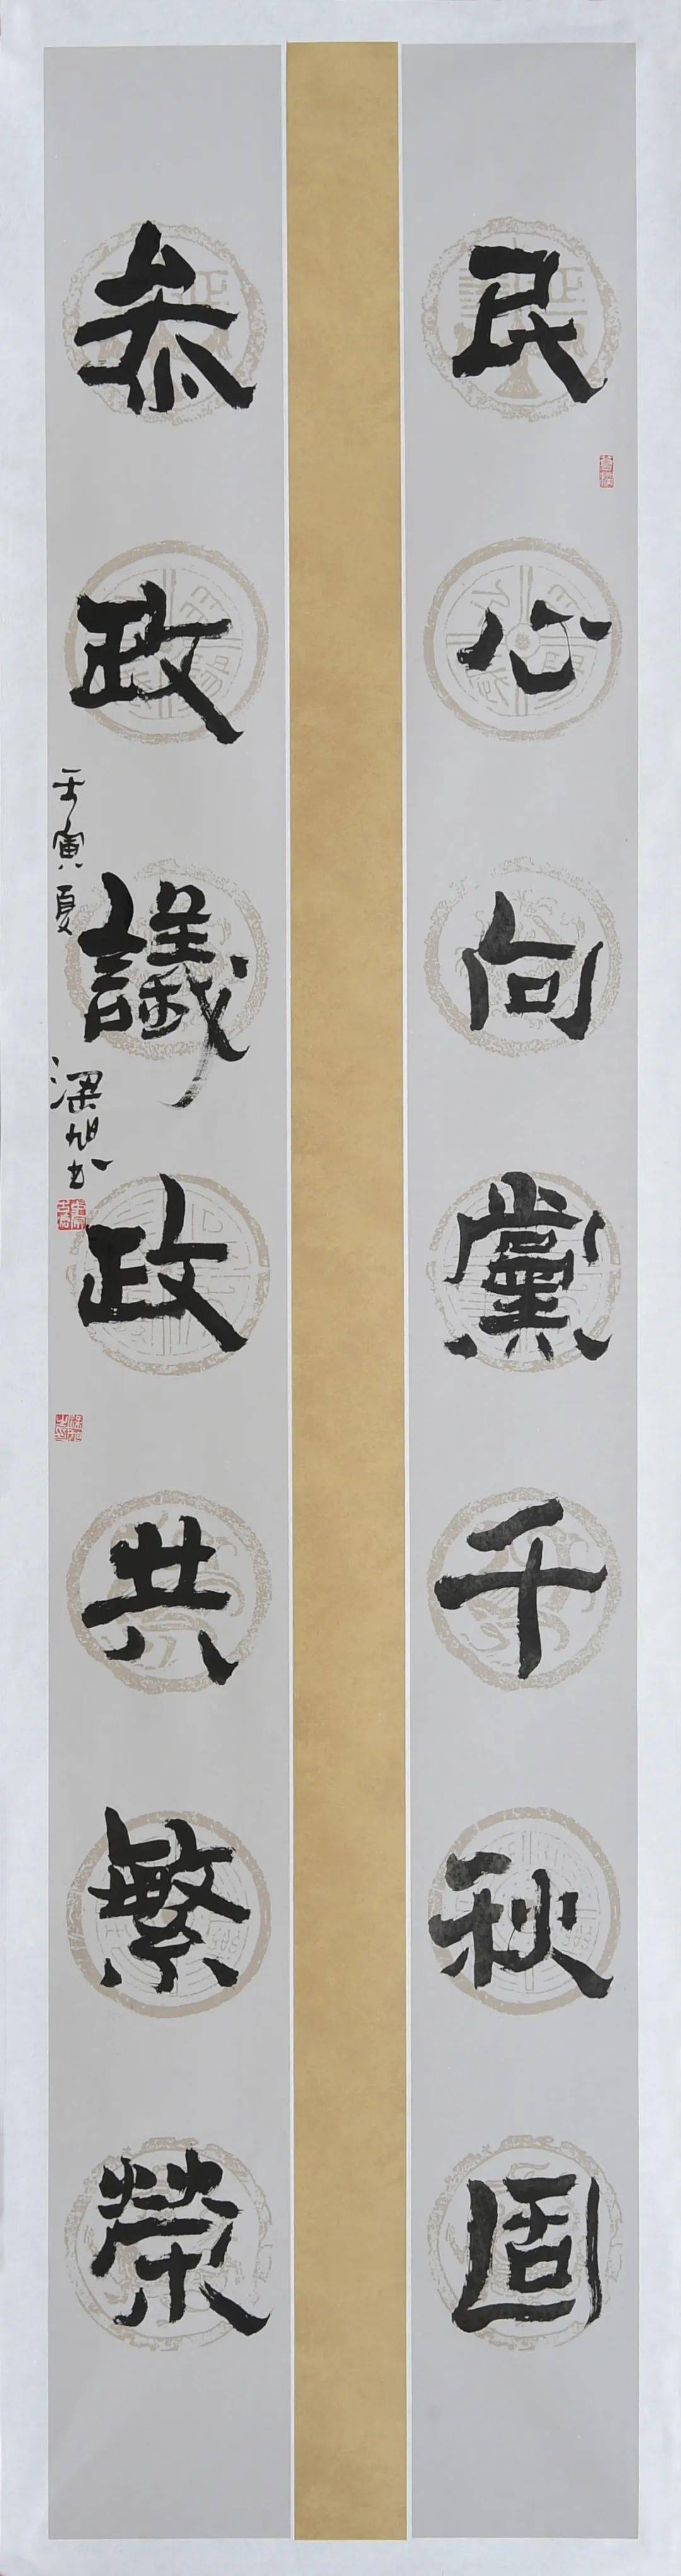 民心向黨千秋固
参政議政共繁榮
壬寅夏
梁旭书